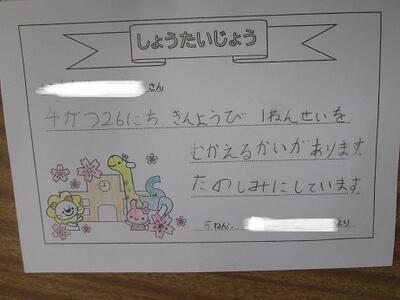 しょうたいじょう
さん
4がつ26にち きんようび 1ねんせいを
むかえるかいがあります。
たのしみにしています。
5ねん: より